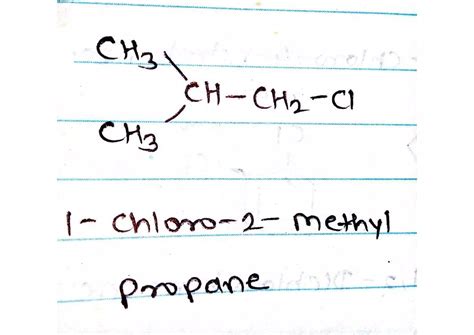 CH3
CH-CH2-Cl
CH3
1- Chloro-2-methyl
propane